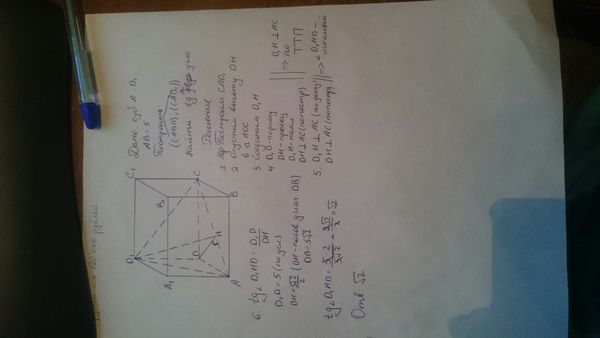 Дано: куб A D₁
AB = 5
Построить
((ABD),(CAD₁))
Найти tg угла
Решение
1 Построим CAD₁
2 Опустим высоту DH
в △ ADC
3 Соединим D₁H
4 D₁D - перпенд
DH - проекц
D₁H - накл
DH ⊥ AC (по постр)
|| => по ТТП D₁H ⊥ AC
5. D₁H ⊥ AC (по доку)
DH ⊥ AC (по постр)
|| => ∠D₁HD - искомый
C₁
D₁
B₁
A₁
C
D
H
5
B
A
6 tg∠D₁HD = D₁D/DH
D₁D = 5 (по усл)
DH = 5√2/2 (DH - полов диаг DB)
DB = 5√2
tg∠D₁HD = 5·2/5√2 = 2√2/2 = √2
Отв √2
120 000 рублей